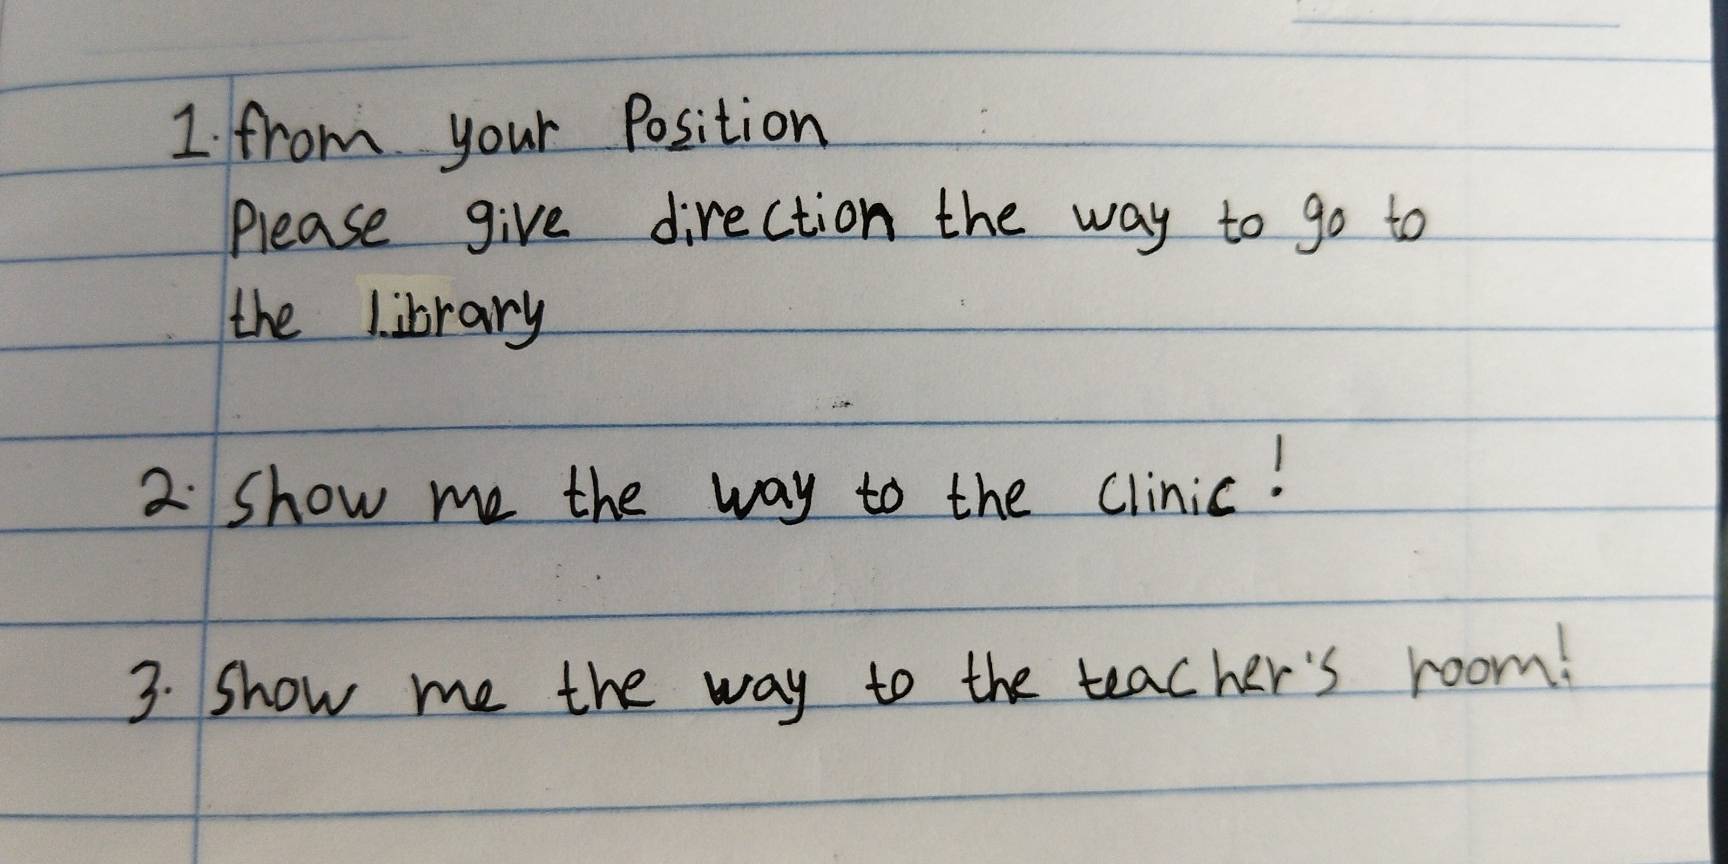 1. from your Position
Please give direction the way to go to
the library
2. Show me the way to the clinic!
3. Show me the way to the teacher's room!